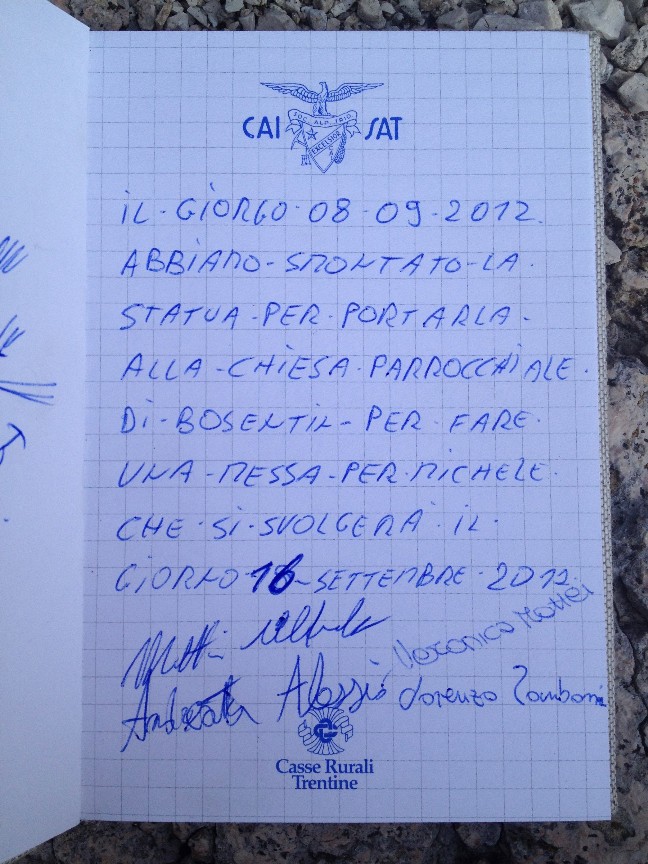 CAI SAT
SOC. ALP. 1910
EXCELSIOR
iL · GiORGO · 08 - 09 - 2012.
ABBiAMO - SMONTATO - LA ·
STATUA · PER · PORTARLA -
ALLA - CHiESA · PARROCCHiALE ·
Di - BOSENTiN - PER · FARE ·
UNA - MESSA - PER · MiCHELE ·
CHE · Si · SVOLGERA' · iL ·
GiORNO 16 - SETTEMBRE · 2012.
Veronica Mattei
Andreatta Alessio Lorenzo Zamboni
Casse Rurali
Trentine